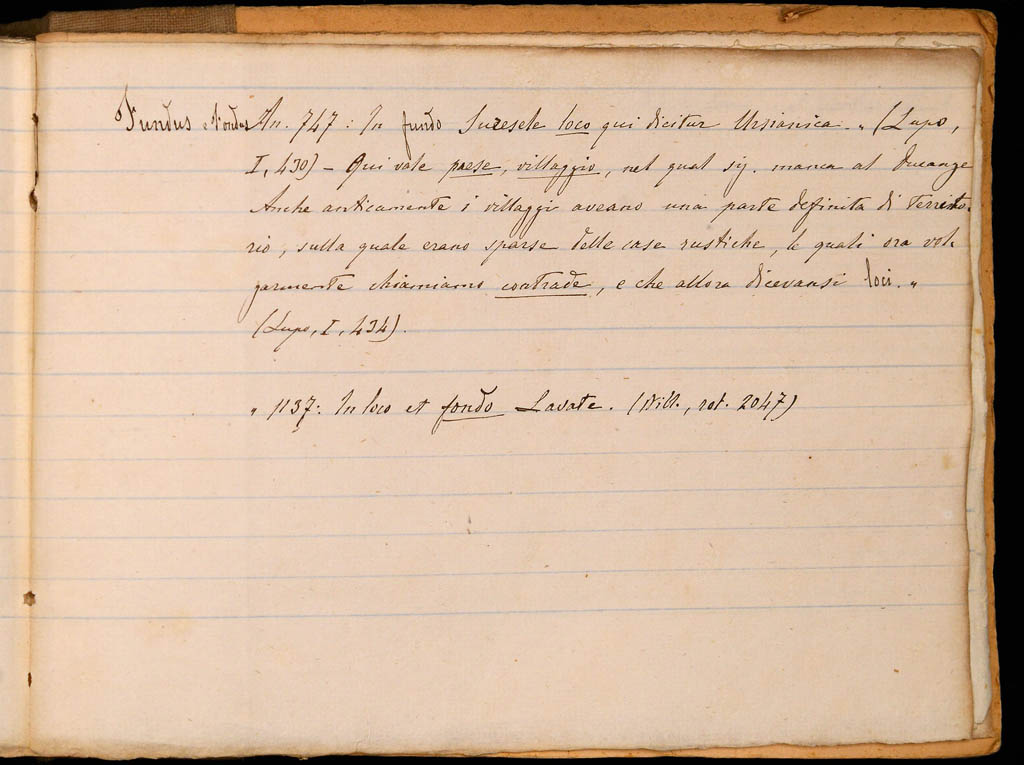 Fundus e Fondus An. 747 : In fundo Suresele loco qui dicitur Ursianica. „ (Lupo,
I, 430) – Qui vale paese, villaggio, nel qual sig. manca al Ducange
Anche anticamente i villaggi aveano una parte definita di territo-
rio, sulla quale erano sparse delle case rustiche, le quali ora vol-
garmente chiamiamo contrade, e che allora dicevansi loci. „
(Lupo, I, 434).
„ 1137: In loco et fondo Lavate. ( rot. 2047)